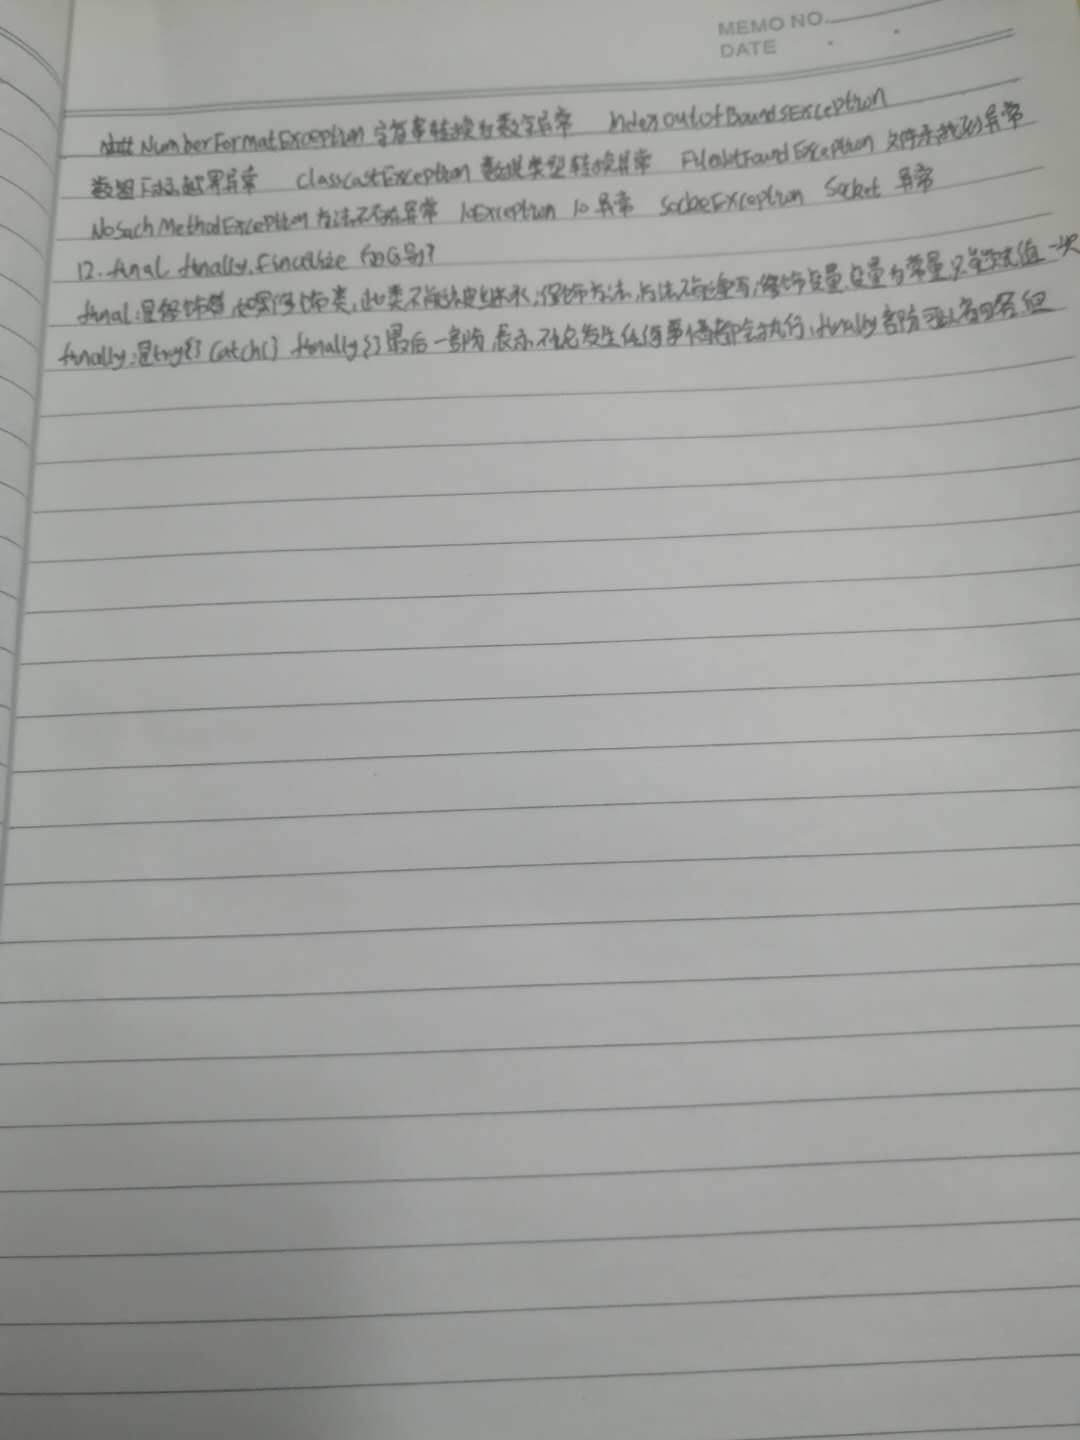 MEMO NO.
DATE
NumberFormatException 字符串转换为数字异常 IndexoutofBoundsException
数组下标越界异常 classcastException 数据类型转换异常 FilenotFoundException 文件未找到异常
NoSuchMethodException 方法不存在异常 IoException Io异常 SocketException Socket 异常
12. final, finally, Finalize 的区别?
final:是修饰符,如果修饰类,此类不能被继承,修饰方法,方法不能重写,修饰变量,变量为常量,只能赋值一次
finally:是try{} catch{} finally{} 最后一部分,表示不论发生任何事情都会执行,finally部分可以省略